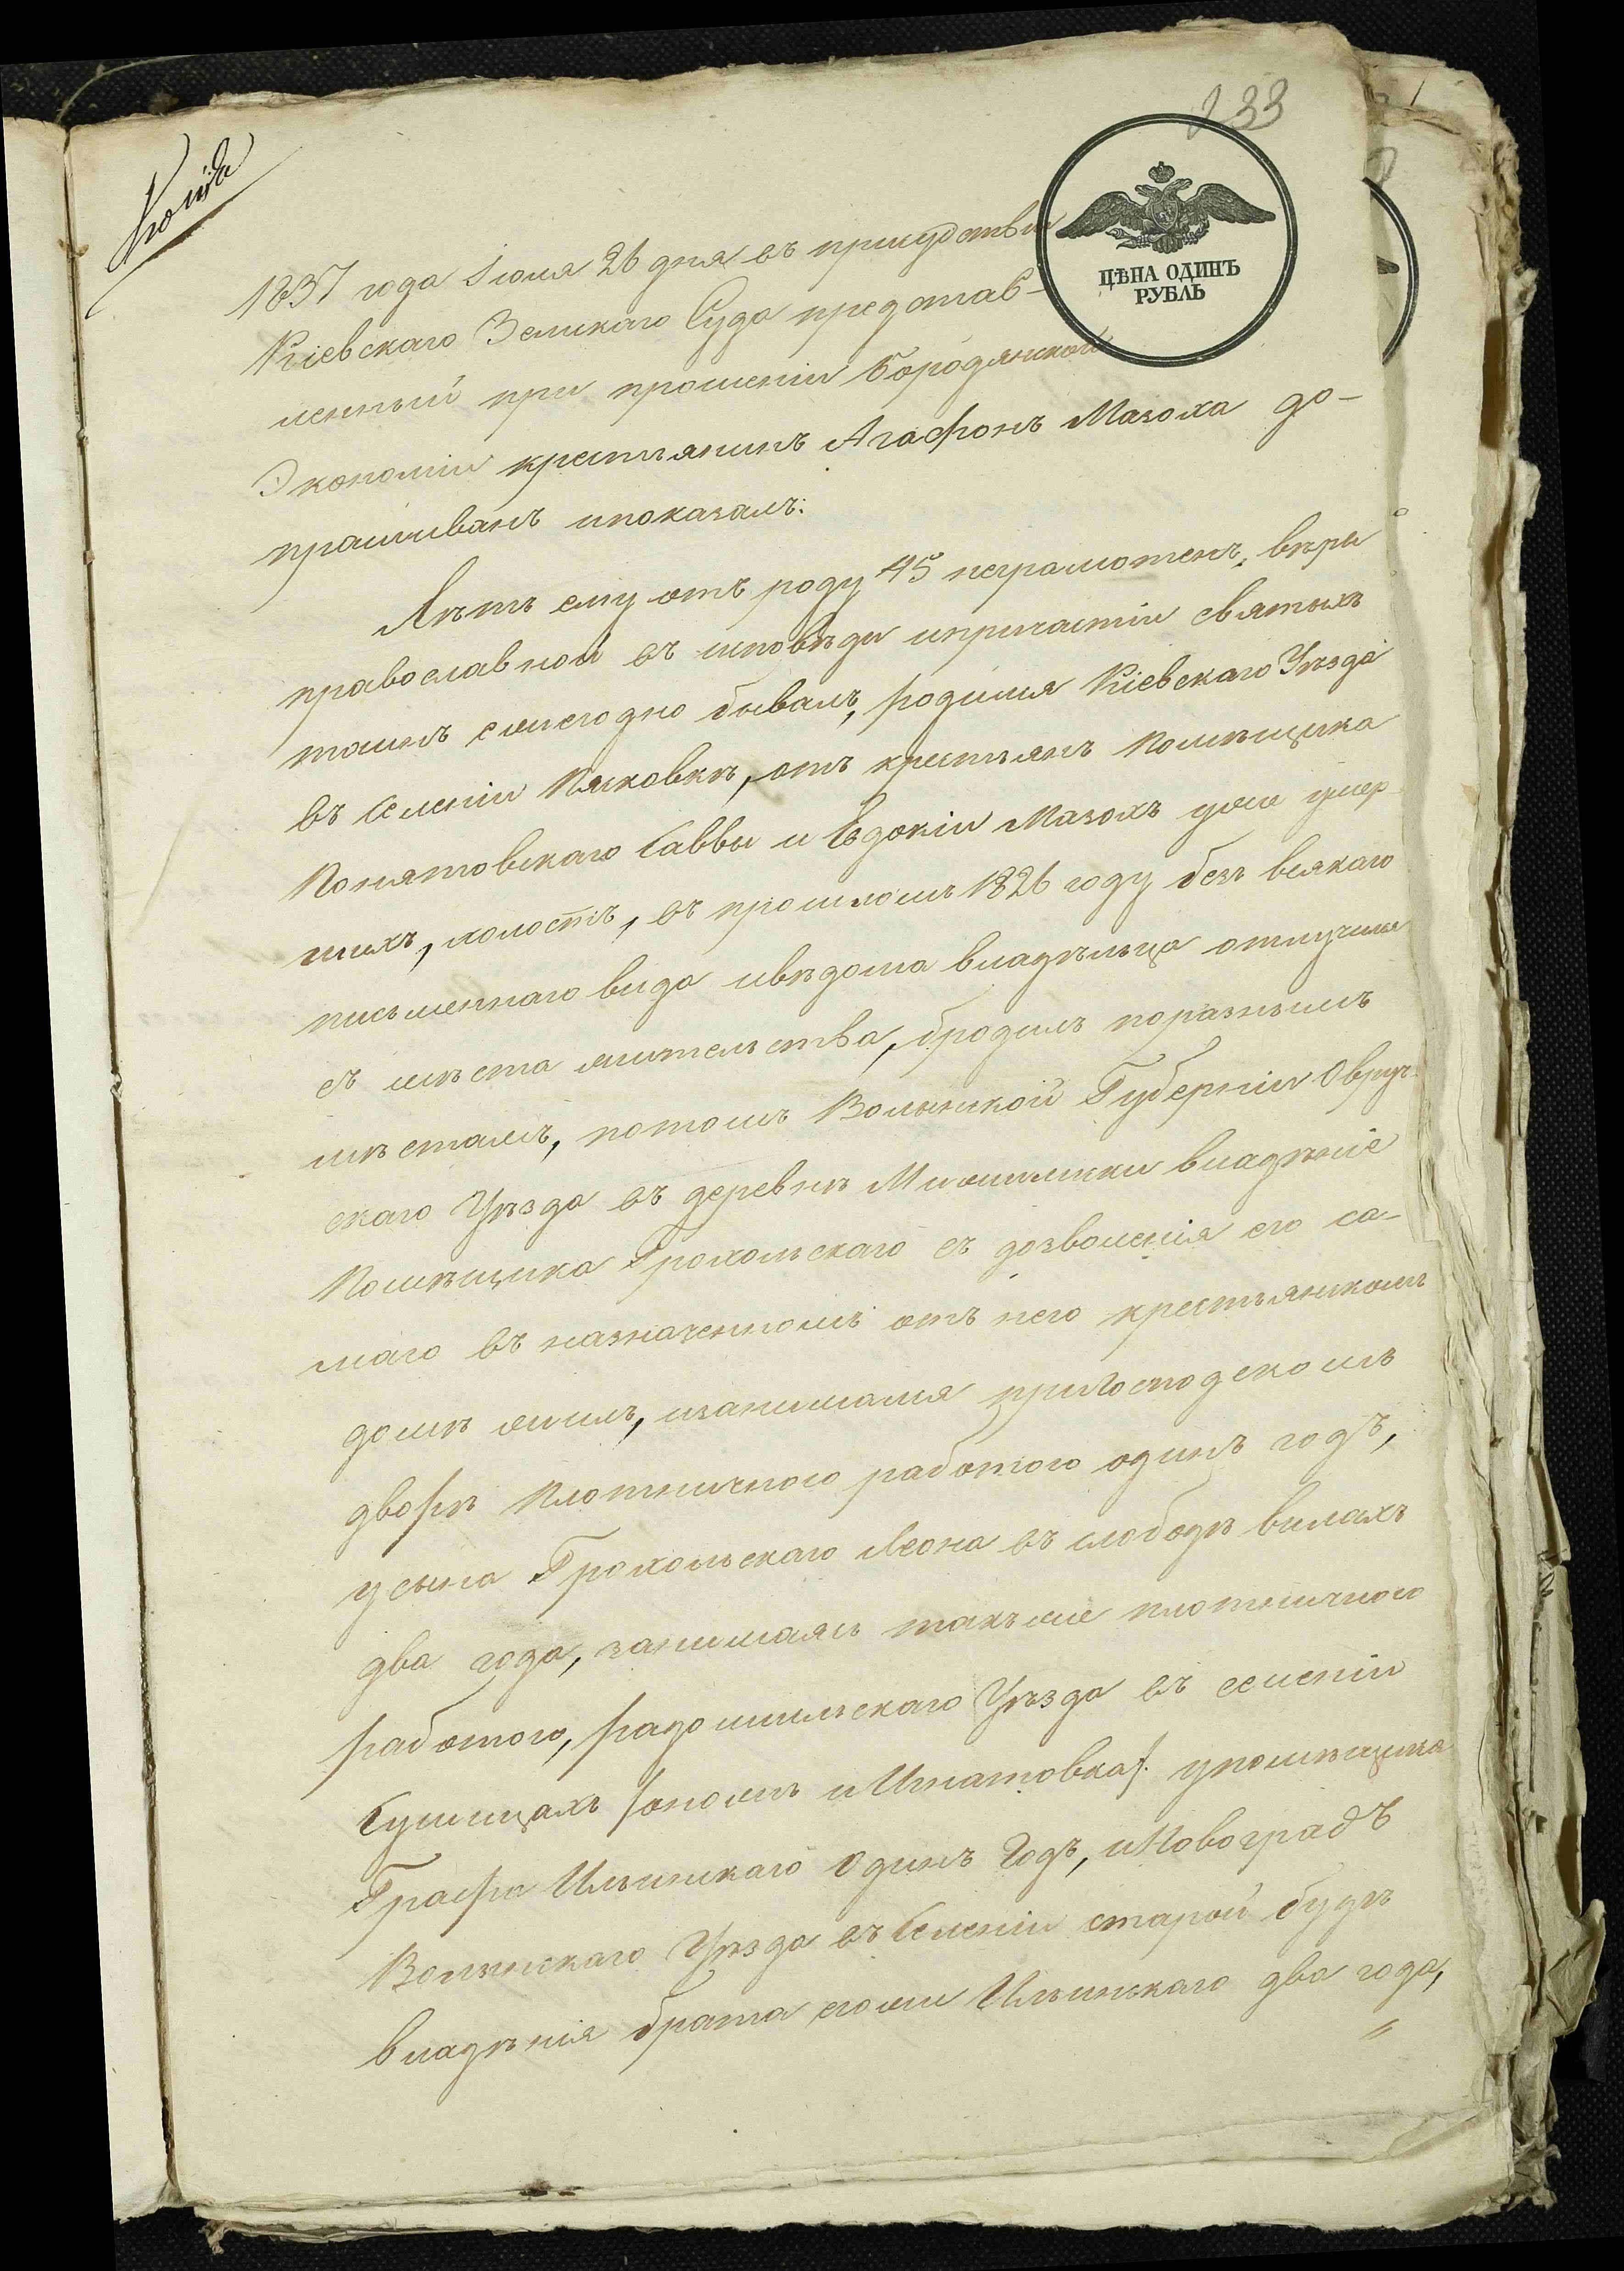 233
Копія
ЦѢНА ОДИНЪ
РУБЛЬ
1837 года Іюля 26 дня въ присудствіи
Кіевскаго Земскаго Суда представ-
ленный при прошеніи Бородянской
Экономіи крестьянинъ Агафонъ Мазоха до-
прашиванъ ипоказалъ:
Лѣтъ ему отъ роду 45 неграмотенъ, вѣры
православной въ исповѣди ипричастіи святыхъ
таинъ ежегодно бывалъ, родился Кіевскаго Уѣзда
въ Селеніи Пясковкѣ, отъ крестьянъ Помѣщика
Понятовскаго Саввы и Евдокіи Мазохъ уже умер
шихъ, холостъ, въ прошломъ 1826 году безъ всякаго
письменнаго вида ивѣдома владѣльца отлучился
съ мѣста жительства, бродилъ поразнымъ
мѣстамъ, потомъ Волынской Губерніи Овруч
скаго Уѣзда въ деревнѣ владѣніе
Помѣщика Трохольскаго съ дозволенія его са-
маго въ назначенномъ отъ него крестьянскомъ
домѣ жилъ, изанимался приГосподскомъ
дворѣ Плотничною работою одинъ годъ,
усына Трохольскаго Леона въ слободѣ вилахъ
два года, занимаясь такъже плотничною
работою, радомыльскаго Уѣзда въ селеніи
/ономъ и Игнатовка/. упомѣщика
Графа Ильинскаго Одинъ Годъ, иНовоградъ
Волынскаго Уѣзда въ Селеніи старой будѣ
владѣнія брата егоже Ильинскаго два года,